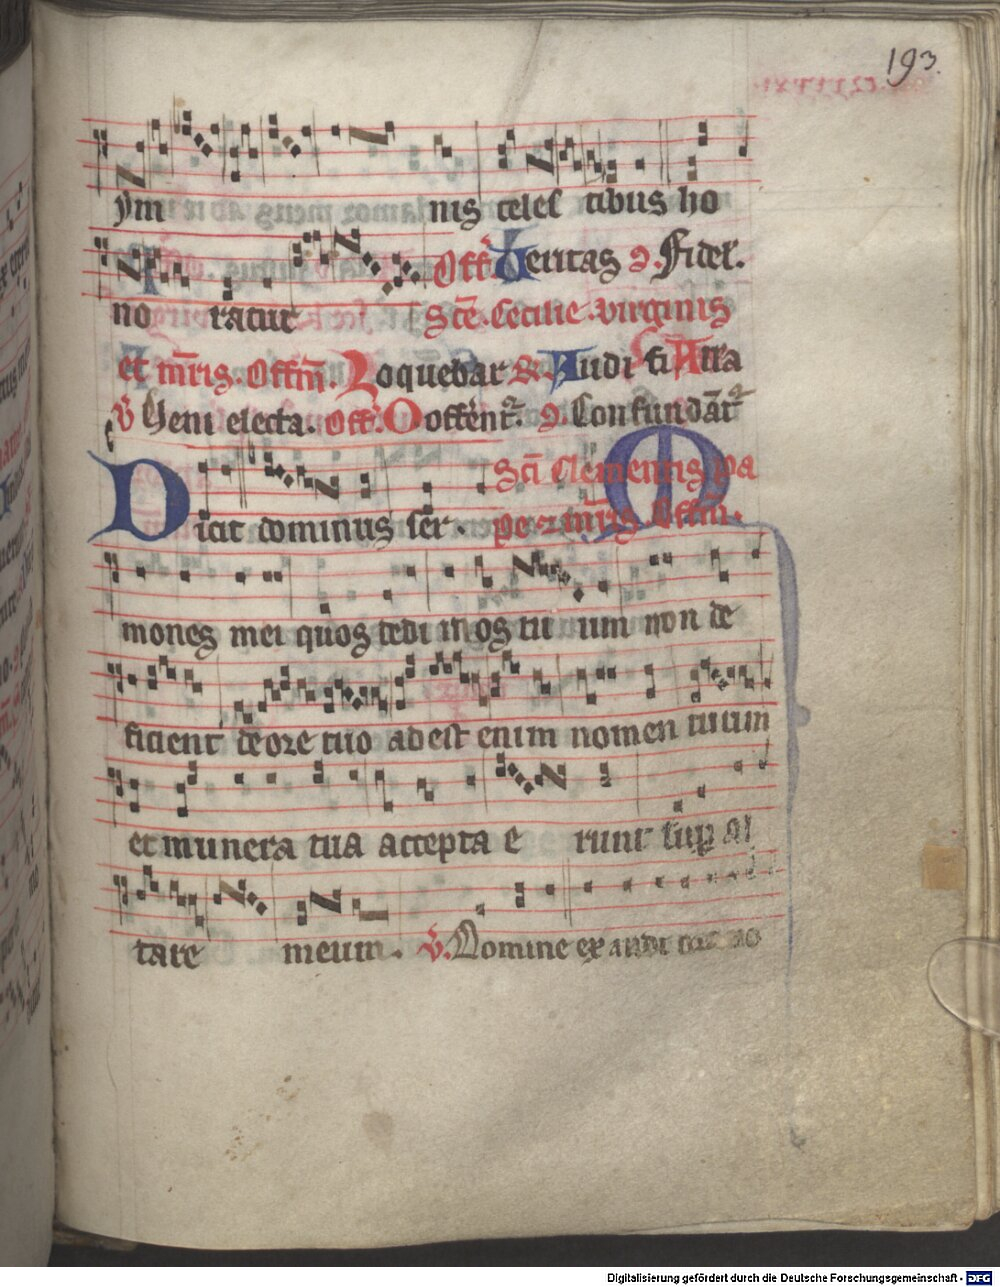 193.
ym nis celes tibus ho
no ratur Off. Veritas Co. Fidel.
Sce. Cecilie. virginis
et mris. Offm. Loquebar R. Audi fi Alla
V Veni electa. Off. Offerent. Co. Confundant
Dicit dominus ser. Sci Clementis pa
pe et mris. Offm.
mones mei quos dedi in os tu um non de
ficient de ore tuo ad est enim nomen tuum
et munera tua accepta e runt sup al
tare meum. V. Domine ex audi
Digitalisierung gefördert durch die Deutsche Forschungsgemeinschaft - DFG